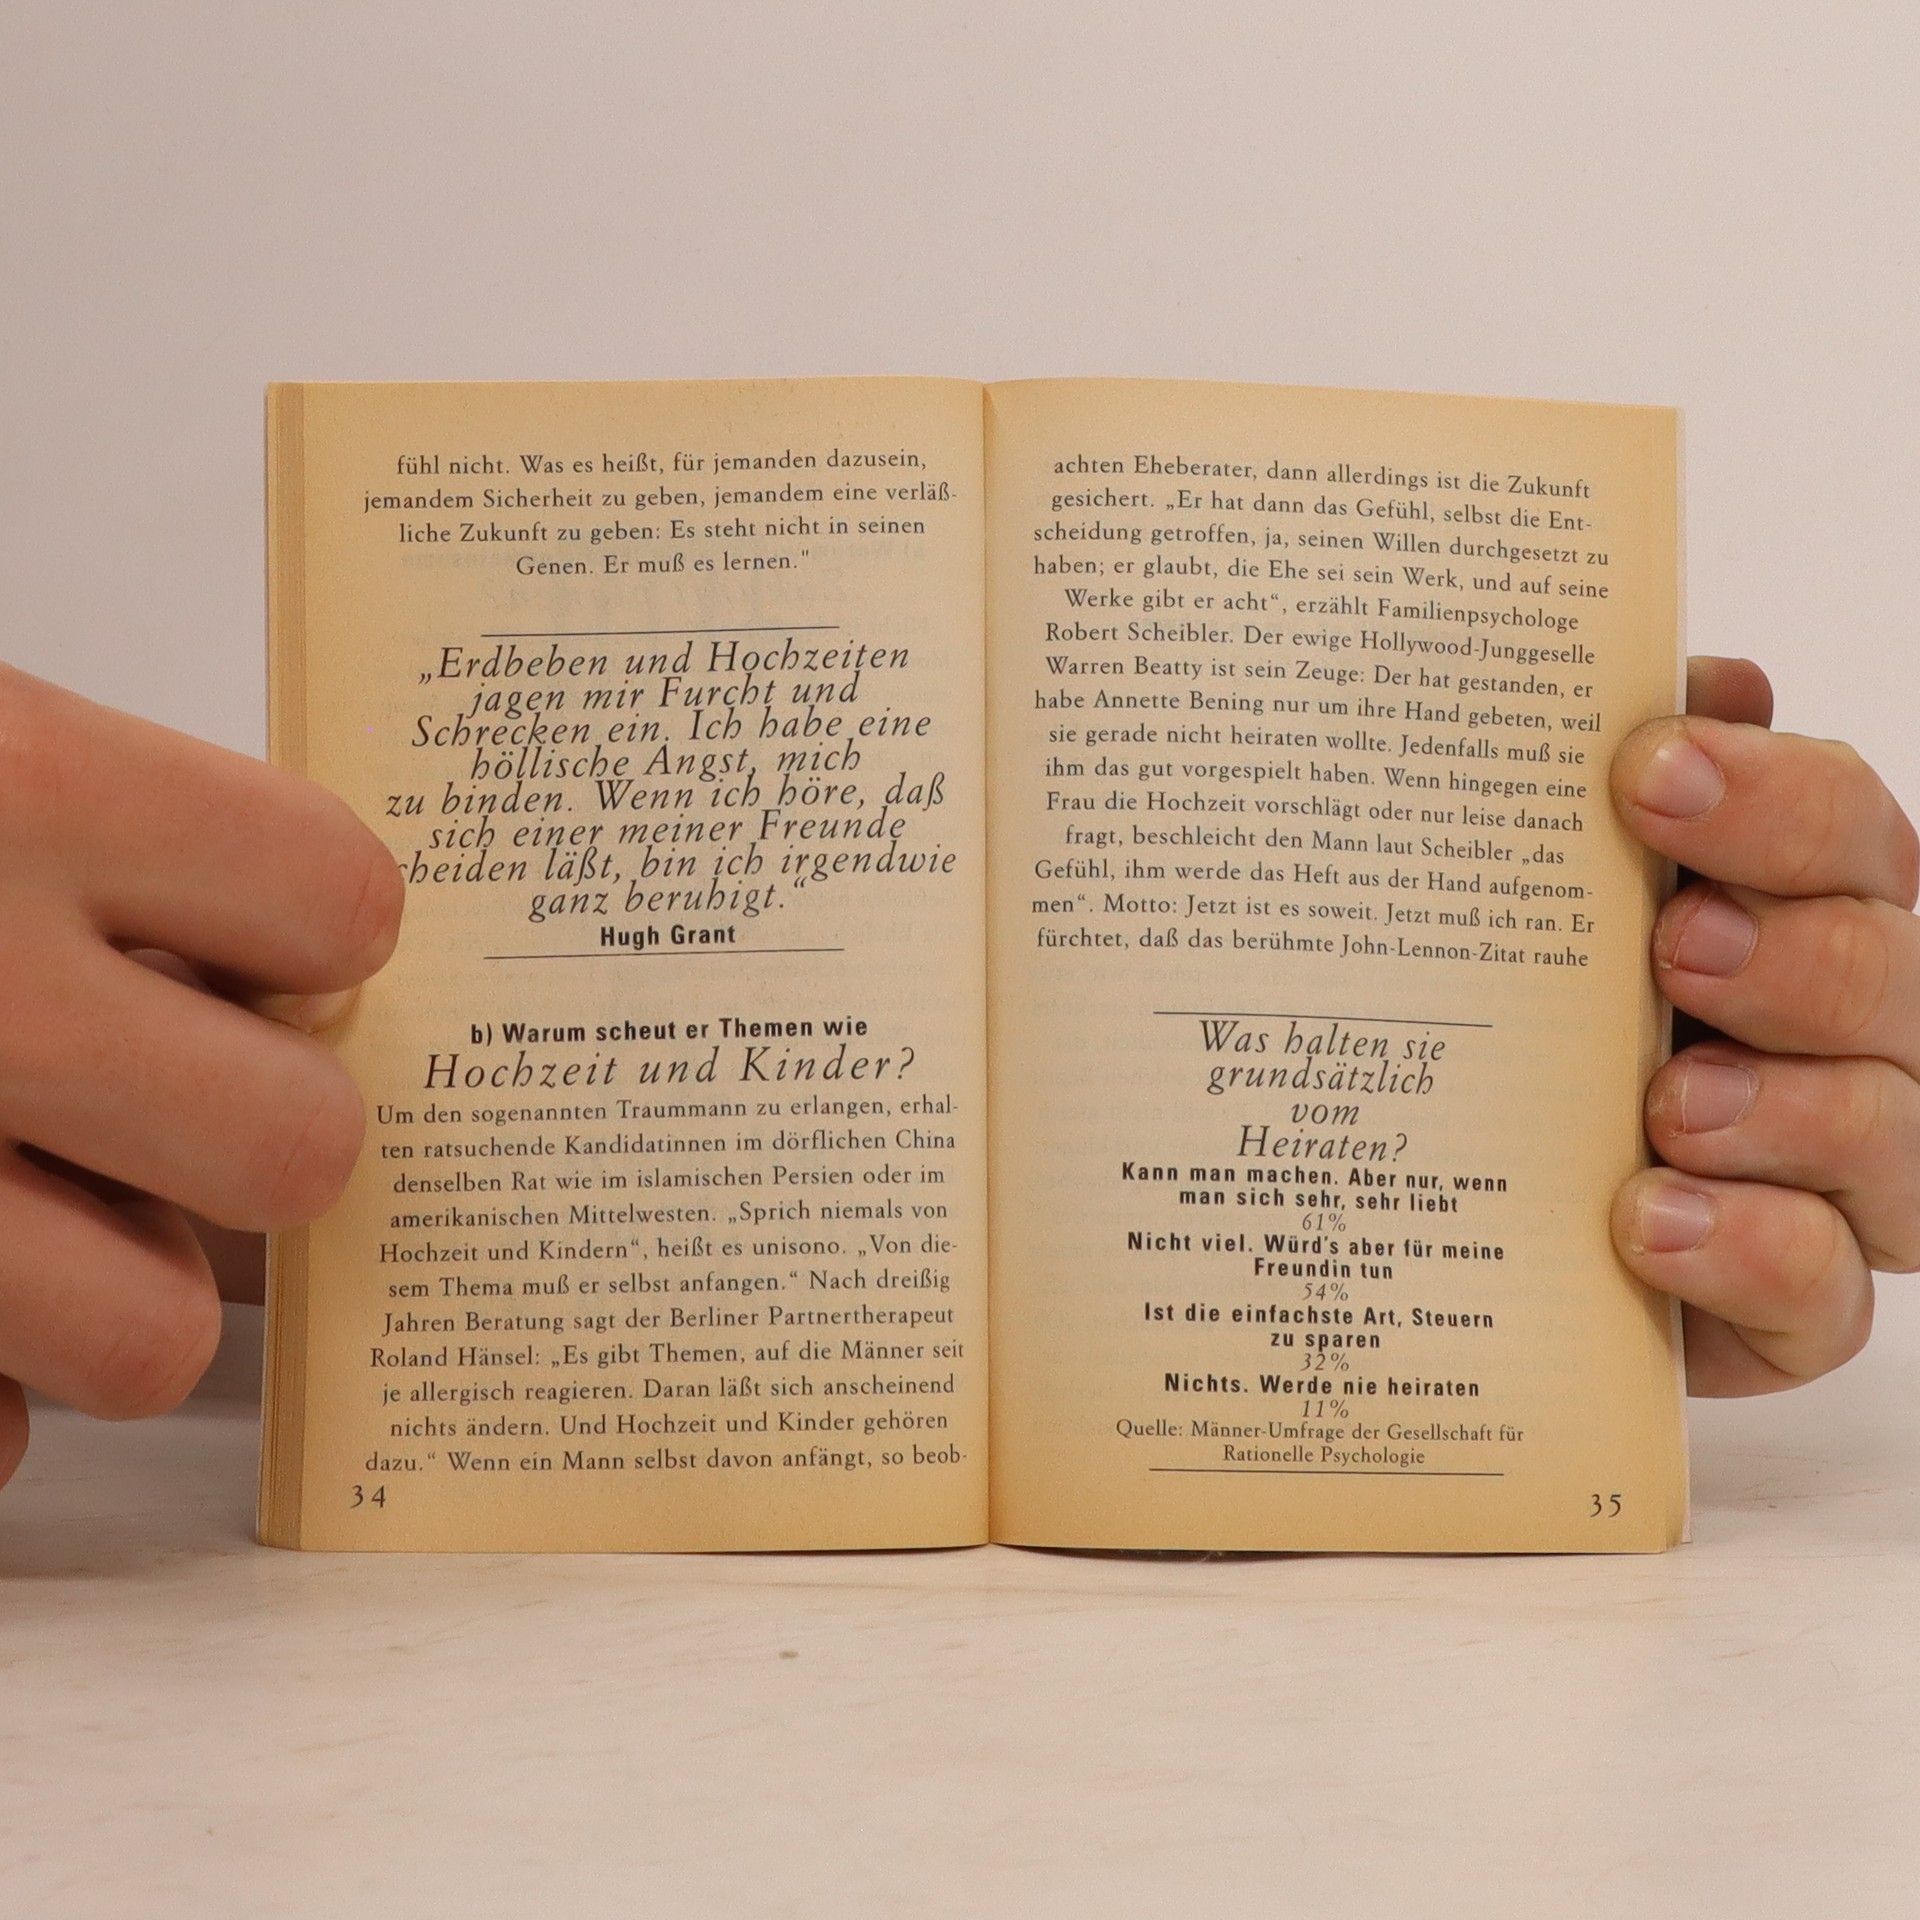 fühl nicht. Was es heißt, für jemanden dazusein,
jemandem Sicherheit zu geben, jemandem eine verläß-
liche Zukunft zu geben: Es steht nicht in seinen
Genen. Er muß es lernen."
„Erdbeben und Hochzeiten
jagen mir Furcht und
Schrecken ein. Ich habe eine
höllische Angst, mich
zu binden. Wenn ich höre, daß
sich einer meiner Freunde
cheiden läßt, bin ich irgendwie
ganz beruhigt.“
Hugh Grant
b) Warum scheut er Themen wie
Hochzeit und Kinder?
Um den sogenannten Traummann zu erlangen, erhal-
ten ratsuchende Kandidatinnen im dörflichen China
denselben Rat wie im islamischen Persien oder im
amerikanischen Mittelwesten. „Sprich niemals von
Hochzeit und Kindern“, heißt es unisono. „Von die-
sem Thema muß er selbst anfangen.“ Nach dreißig
Jahren Beratung sagt der Berliner Partnertherapeut
Roland Hänsel: „Es gibt Themen, auf die Männer seit
je allergisch reagieren. Daran läßt sich anscheinend
nichts ändern. Und Hochzeit und Kinder gehören
dazu.“ Wenn ein Mann selbst davon anfängt, so beob-
34
achten Eheberater, dann allerdings ist die Zukunft
gesichert. „Er hat dann das Gefühl, selbst die Ent-
scheidung getroffen, ja, seinen Willen durchgesetzt zu
haben; er glaubt, die Ehe sei sein Werk, und auf seine
Werke gibt er acht“, erzählt Familienpsychologe
Robert Scheibler. Der ewige Hollywood-Junggeselle
Warren Beatty ist sein Zeuge: Der hat gestanden, er
habe Annette Bening nur um ihre Hand gebeten, weil
sie gerade nicht heiraten wollte. Jedenfalls muß sie
ihm das gut vorgespielt haben. Wenn hingegen eine
Frau die Hochzeit vorschlägt oder nur leise danach
fragt, beschleicht den Mann laut Scheibler „das
Gefühl, ihm werde das Heft aus der Hand aufgenom-
men“. Motto: Jetzt ist es soweit. Jetzt muß ich ran. Er
fürchtet, daß das berühmte John-Lennon-Zitat rauhe
Was halten sie
grundsätzlich
vom
Heiraten?
Kann man machen. Aber nur, wenn
man sich sehr, sehr liebt
61%
Nicht viel. Würd's aber für meine
Freundin tun
54%
Ist die einfachste Art, Steuern
zu sparen
32%
Nichts. Werde nie heiraten
11%
Quelle: Männer-Umfrage der Gesellschaft für
Rationelle Psychologie
35